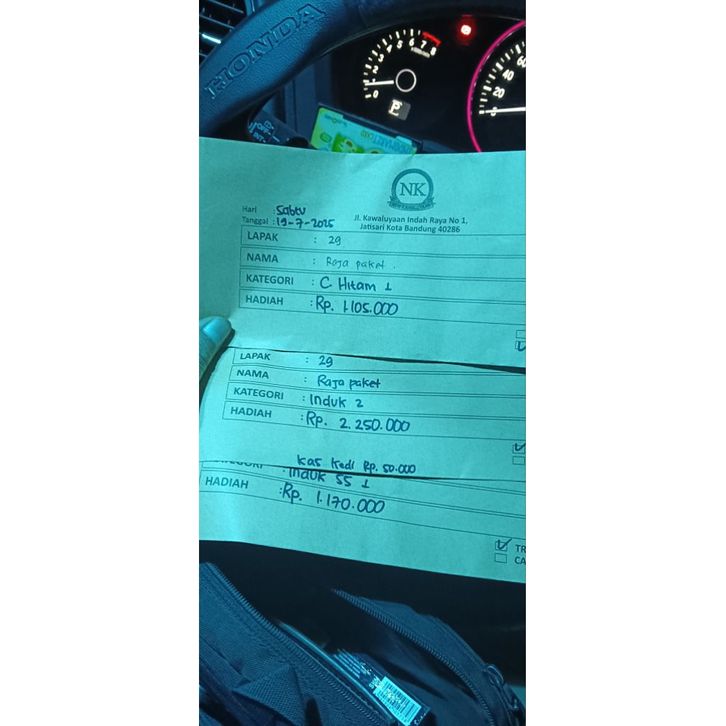 HONDA
NK
Hari : Sabtu
Tanggal : 19-7-2025
Jl. Kawaluyaan Indah Raya No 1,
Jatisari Kota Bandung 40286
LAPAK : 29
NAMA : Raja paket.
KATEGORI : C. Hitam 1
HADIAH : Rp. 1.105.000
LAPAK : 29
NAMA : Raja paket
KATEGORI : Induk 2
HADIAH : Rp. 2.250.000
kas Kedi Rp. 50.000
: Induk 55 1
HADIAH : Rp. 1.170.000
TR
CA